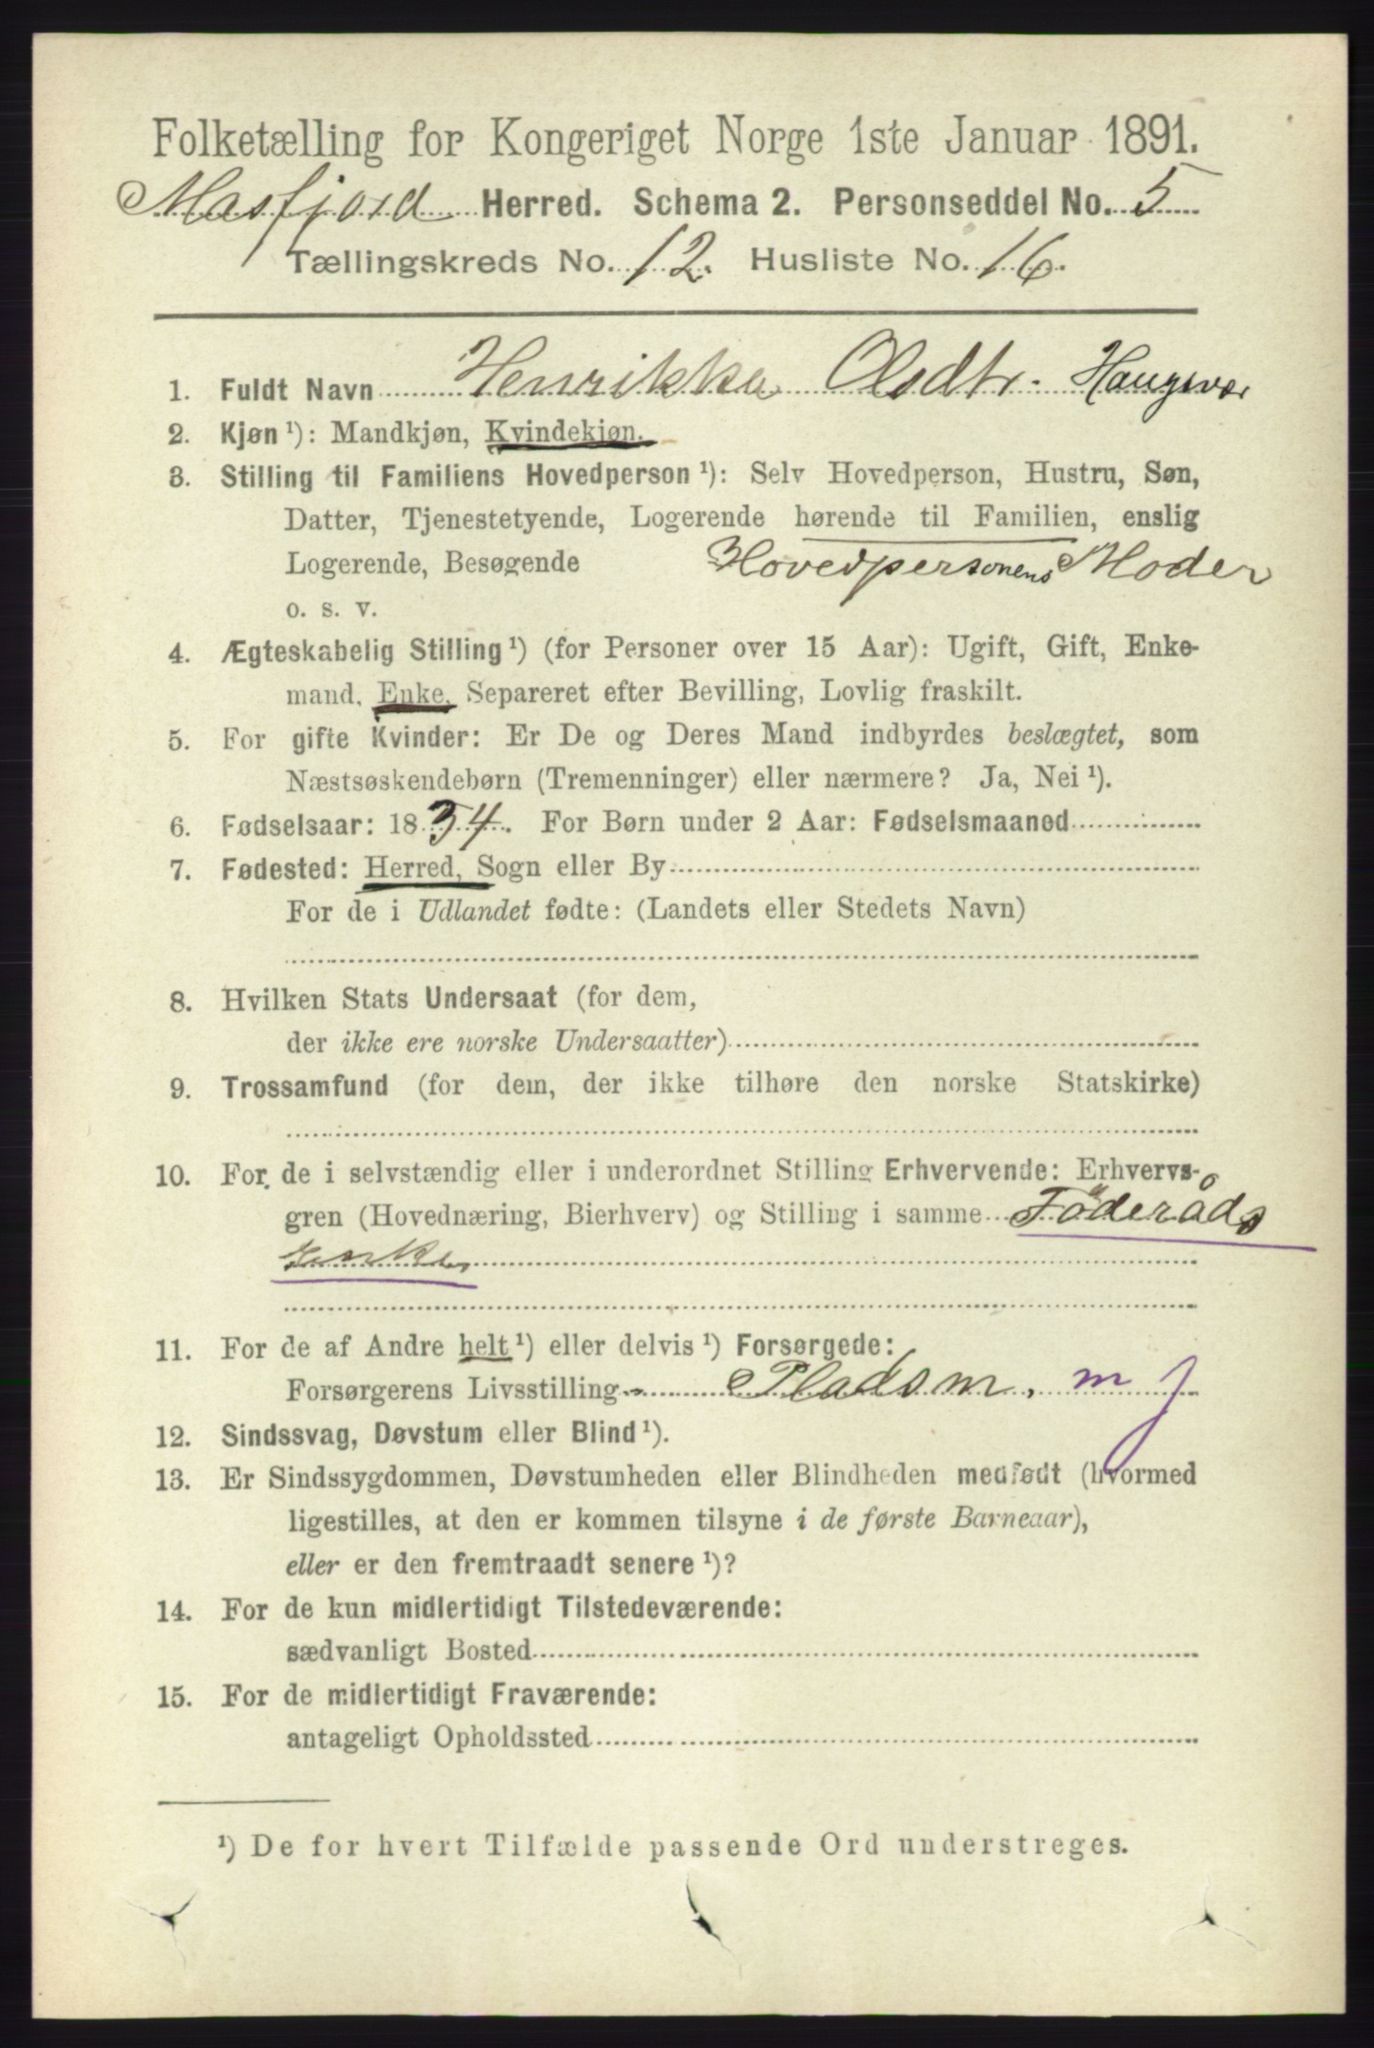 Folketælling for Kongeriget Norge 1ste Januar 1891.
Masfjord Herred. Schema 2. Personseddel No. 5
Tællingskreds No. 12. Husliste No. 16.
1. Fuldt Navn Henrikka Olsdtr. Haugsvær
2. Kjøn ¹): Mandkjøn, Kvindekjøn.
3. Stilling til Familiens Hovedperson ¹): Selv Hovedperson, Hustru, Søn,
Datter, Tjenestetyende, Logerende hørende til Familien, enslig
Logerende, Besøgende Hovedpersonens Moder
o. s. v.
4. Ægteskabelig Stilling ¹) (for Personer over 15 Aar): Ugift, Gift, Enke-
mand, Enke, Separeret efter Bevilling, Lovlig fraskilt.
5. For gifte Kvinder: Er De og Deres Mand indbyrdes beslægtet, som
Næstsøskendebørn (Tremenninger) eller nærmere? Ja, Nei ¹).
6. Fødselsaar: 1834. For Børn under 2 Aar: Fødselsmaaned
7. Fødested: Herred, Sogn eller By
For de i Udlandet fødte: (Landets eller Stedets Navn)
8. Hvilken Stats Undersaat (for dem,
der ikke ere norske Undersaatter)
9. Trossamfund (for dem, der ikke tilhøre den norske Statskirke)
10. For de i selvstændig eller i underordnet Stilling Erhvervende: Erhvervs-
gren (Hovednæring, Bierhverv) og Stilling i samme Föderåds
Enke
11. For de af Andre helt ¹) eller delvis ¹) Forsørgede:
Forsørgerens Livsstilling Pladsm. m j
12. Sindssvag, Døvstum eller Blind ¹).
13. Er Sindssygdommen, Døvstumheden eller Blindheden medfødt (hvormed
ligestilles, at den er kommen tilsyne i de første Barneaar),
eller er den fremtraadt senere ¹)?
14. For de kun midlertidigt Tilstedeværende:
sædvanligt Bosted
15. For de midlertidigt Fraværende:
antageligt Opholdssted
¹) De for hvert Tilfælde passende Ord understreges.